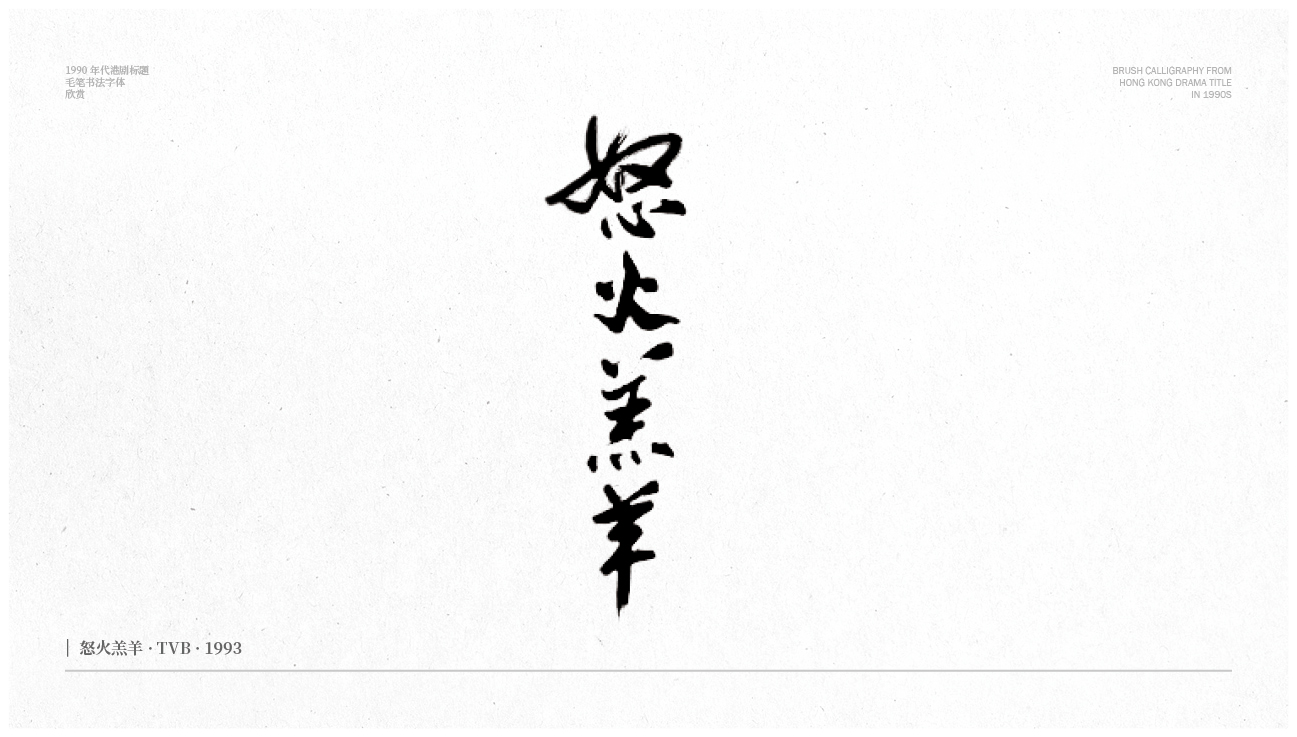 1990 年代港剧标题
毛笔书法字体
欣赏
BRUSH CALLIGRAPHY FROM
HONG KONG DRAMA TITLE
IN 1990S
怒火羔羊
怒火羔羊 · TVB · 1993